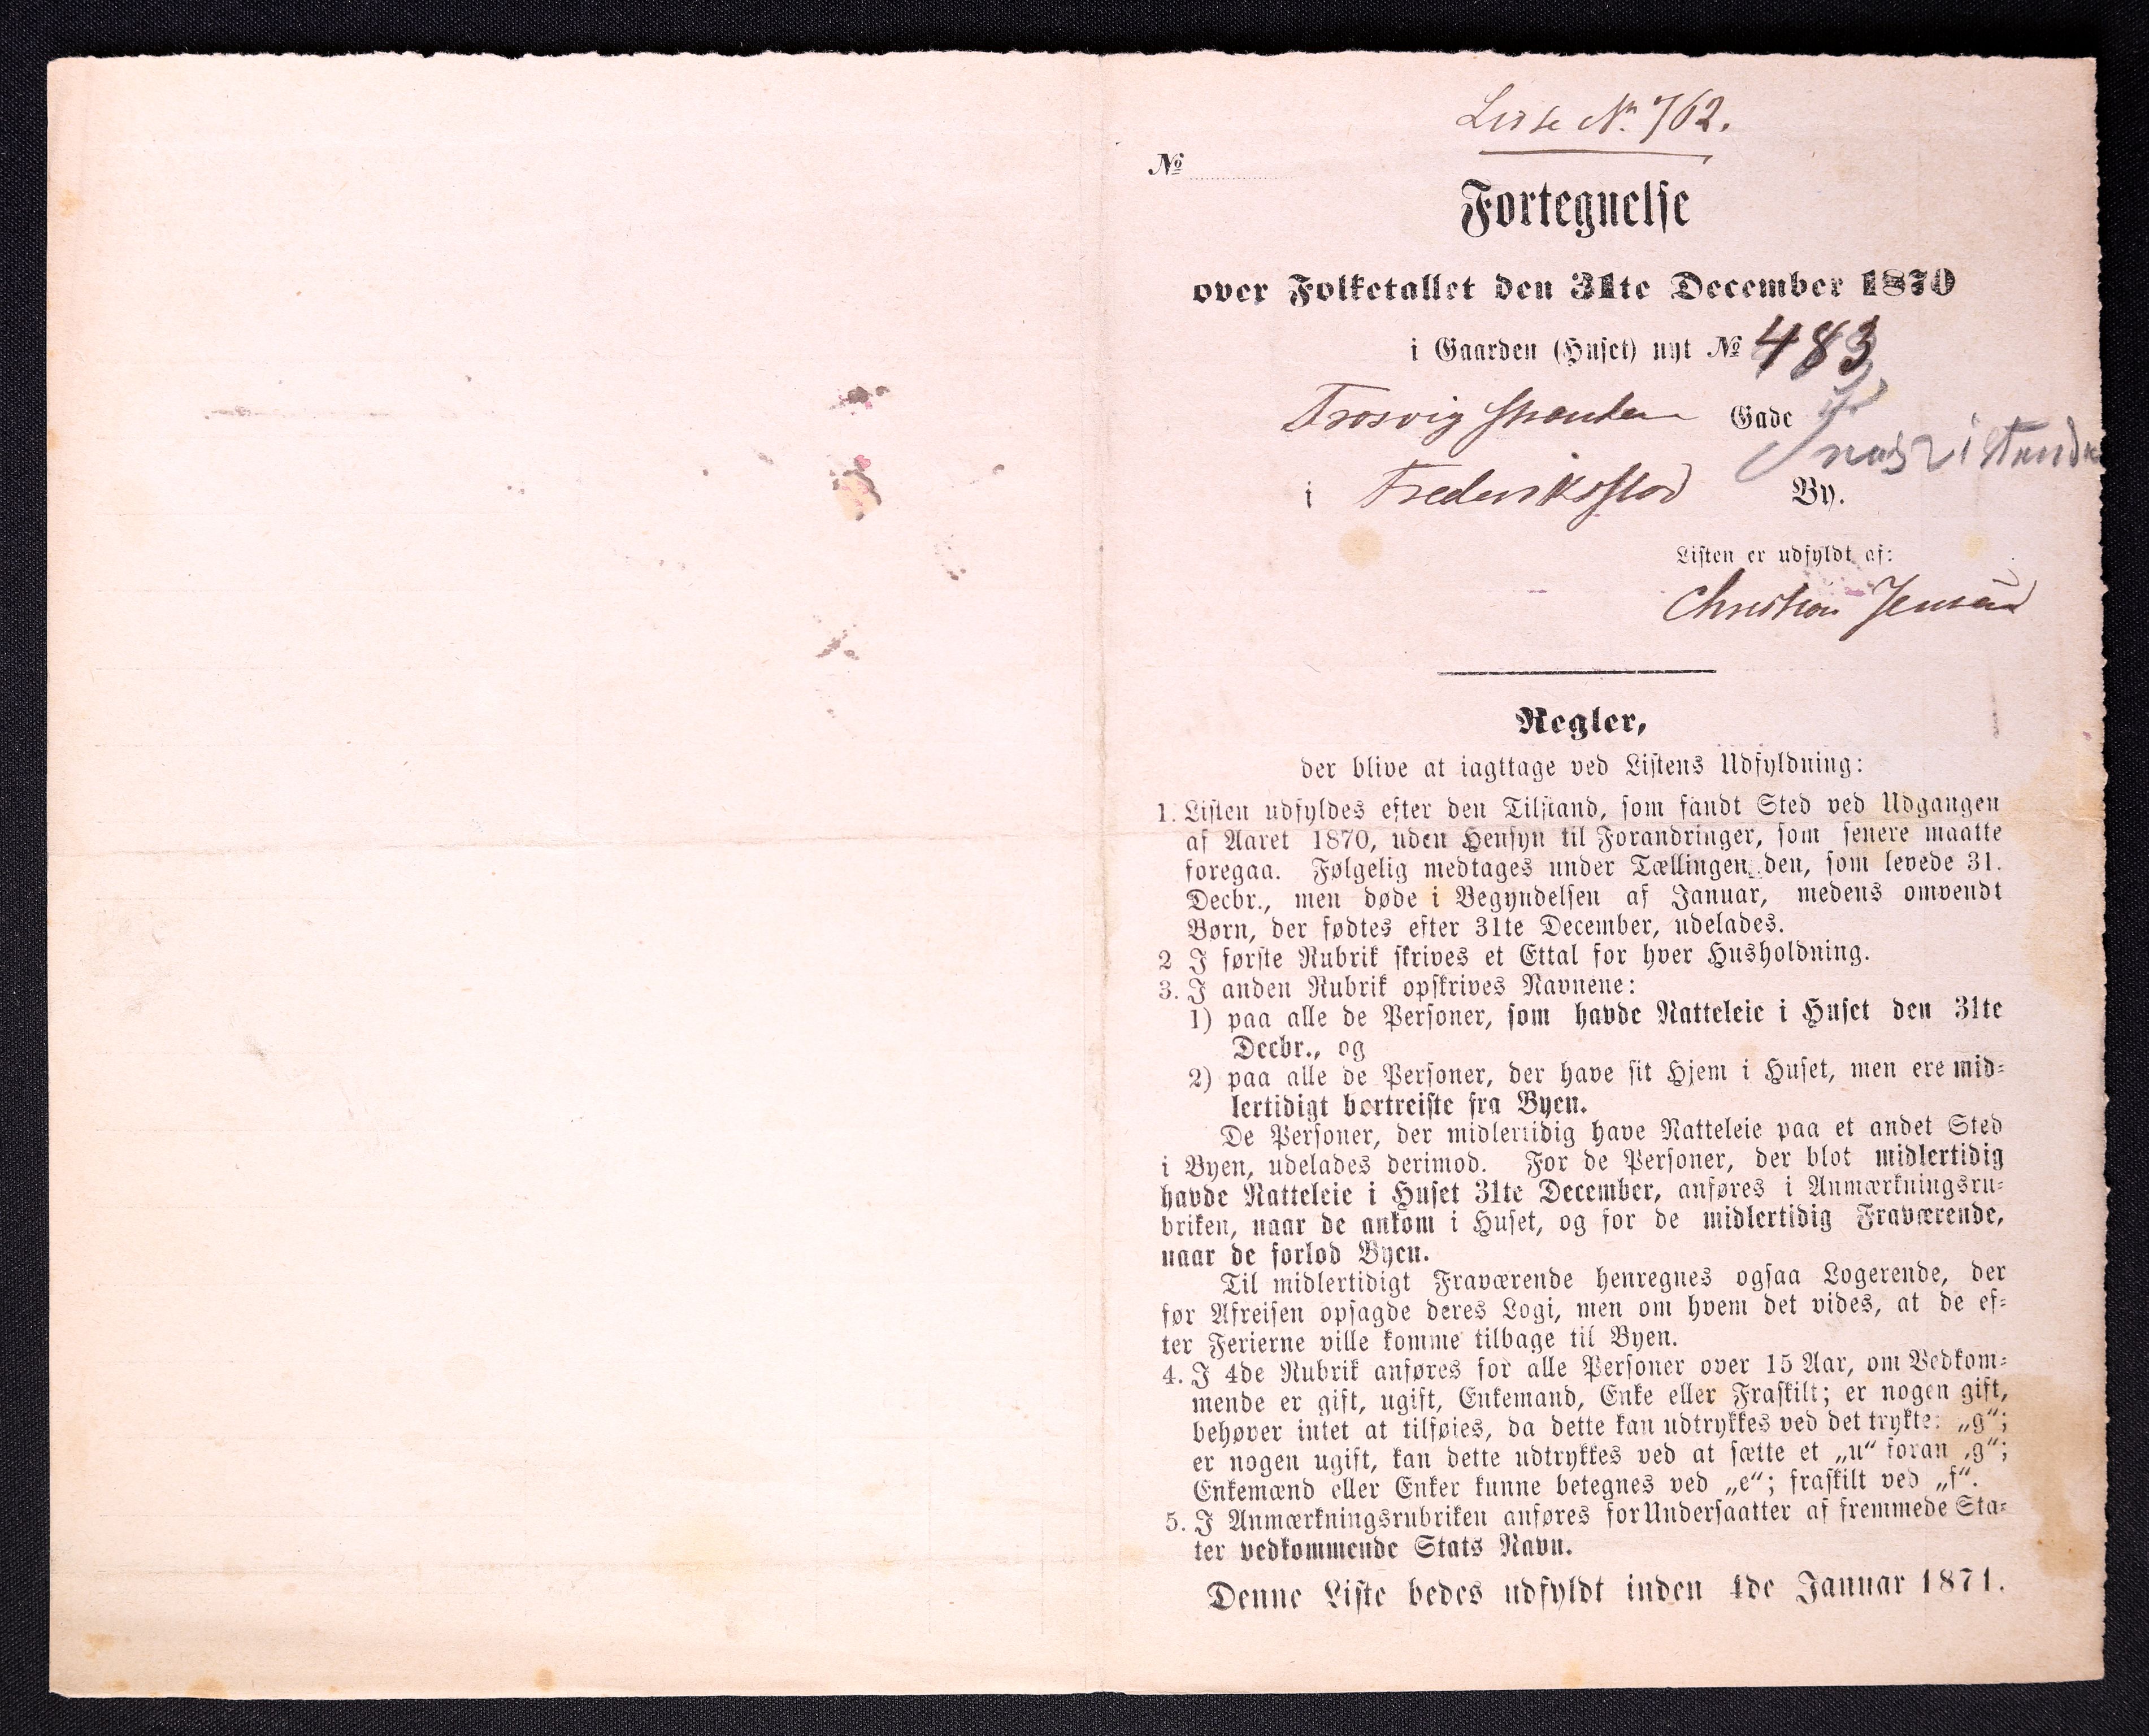 Liste № 762.
№
Fortegnelse
over Folketallet den 31te December 1870
i Gaarden (Huset) nyt № 483
Trosvig Gade
i Frederiksstad By.
Listen er udfyldt af:
Christian Jensen
Regler,
der blive at iagttage ved Listens Udfyldning:
1. Listen udfyldes efter den Tilstand, som fandt Sted ved Udgangen
af Aaret 1870, uden Hensyn til Forandringer, som senere maatte
foregaa. Følgelig medtages under Tællingen den, som levede 31.
Decbr., men døde i Begyndelsen af Januar, medens omvendt
Børn, der fødtes efter 31te December, udelades.
2 I første Rubrik skrives et Ettal for hver Husholdning.
3. I anden Rubrik opskrives Navnene:
1) paa alle de Personer, som havde Natteleie i Huset den 31te
Decbr., og
2) paa alle de Personer, der have sit Hjem i Huset, men ere mid-
lertidigt bortreiste fra Byen.
De Personer, der midlertidig have Natteleie paa et andet Sted
i Byen, udelades derimod. For de Personer, der blot midlertidig
havde Natteleie i Huset 31te December, anføres i Anmærkningsru-
briken, naar de ankom i Huset, og for de midlertidig Fraværende,
naar de forlod Byen.
Til midlertidigt Fraværende henregnes ogsaa Logerende, der
før Afreisen opsagde deres Logi, men om hvem det vides, at de ef-
ter Ferierne ville komme tilbage til Byen.
4. I 4de Rubrik anføres for alle Personer over 15 Aar, om Vedkom-
mende er gift, ugift, Enkemand, Enke eller Fraskilt; er nogen gift,
behøver intet at tilføies, da dette kan udtrykkes ved det trykte: „g“;
er nogen ugift, kan dette udtrykkes ved at sætte et „u“ foran „g“;
Enkemænd eller Enker kunne betegnes ved „e“; fraskilt ved „f“.
5. I Anmærkningsrubriken anføres for Undersaatter af fremmede Sta-
ter vedkommende Stats Navn.
Denne Liste bedes udfyldt inden 4de Januar 1871.